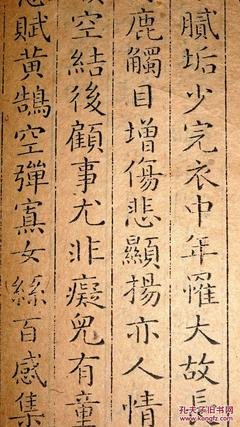 膩垢少完衣中年罹大故長
鹿觸目增傷悲顯揚亦人情
空結後顧事尤非癡兒有童
賦黃鵠空彈寡女絲百感集
孔夫子旧书网